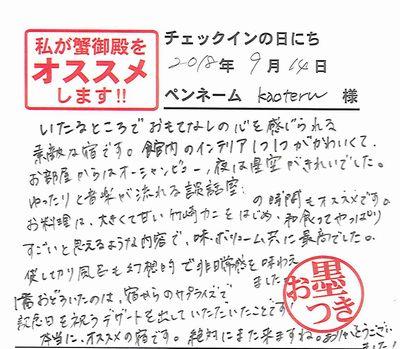 私が蟹御殿を
オススメ
します!!
チェックインの日にち
2018年 9月 14日
ペンネーム kaoteru 様
いたるところでおもてなしの心を感じられる
素敵な宿です。館内のインテリア1つ1つがかわいくて、
お部屋からはオーシャンビュー、夜は星空がきれいでした。
ゆったりと音楽が流れる談話室 の時間もオススメです。
お料理は、大きくて甘い竹崎カニをはじめ、和食ってやっぱり
すごいと思えるような内容で、味・ボリューム共に最高でした。
貸し切り風呂も幻想的で非日常感を味わえ
ました
1番おどろいたのは、宿からのサプライズで
記念日を祝うデザートを出していただいたことです
本当に、オススメの宿です。絶対にまた来ますね。ありがとうござい
ました!
お墨つき